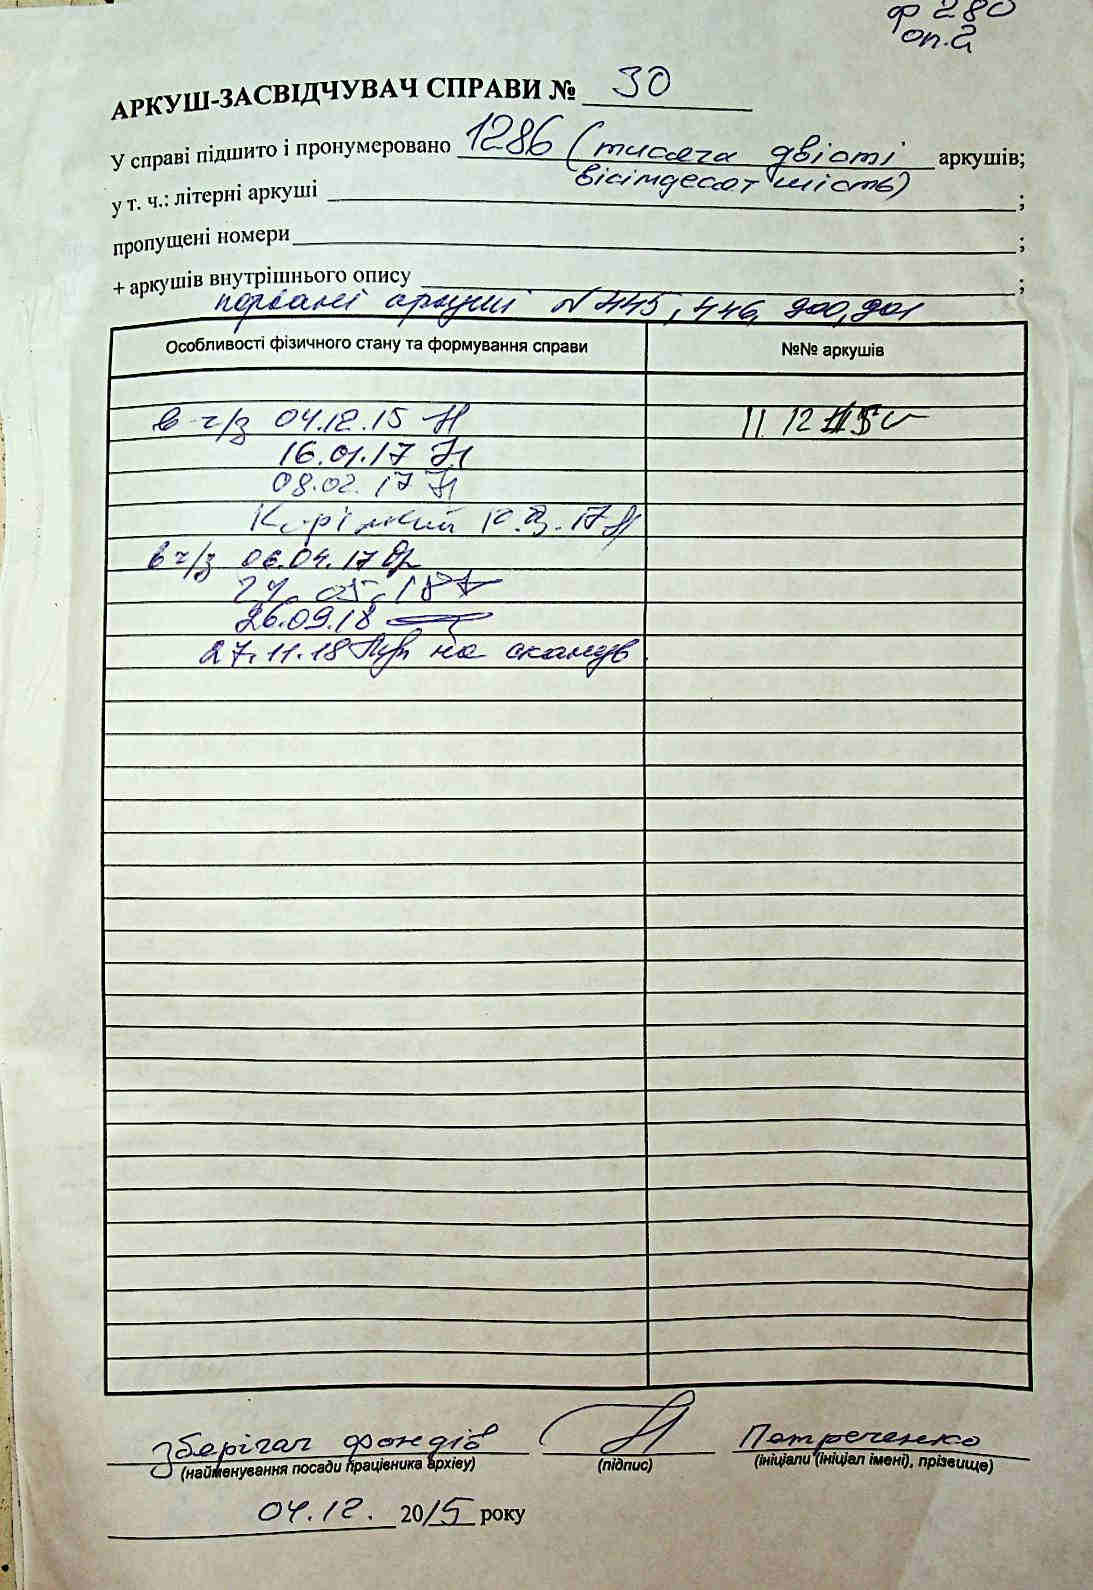 ф 280
оп.2
АРКУШ-ЗАСВІДЧУВАЧ СПРАВИ № 30
У справі підшито і пронумеровано 1286 (тисяча двісті аркушів;
вісімдесят шість)
у т. ч.: літерні аркуші ;
пропущені номери ;
+ аркушів внутрішнього опису ;
порвані аркуші N 445, 446, 900, 901
Особливості фізичного стану та формування справи №№ аркушів
в ч/з 04.12.15 11 12
16.01.17
08.02.17
17
в ч/з 06.04.17
24.05.18
26.09.18
27.11.18 на сканув
Зберігач фондів Петреченко
(найменування посади працівника архіву) (підпис) (ініціали (ініціал імені), прізвище)
04.12. 2015 року